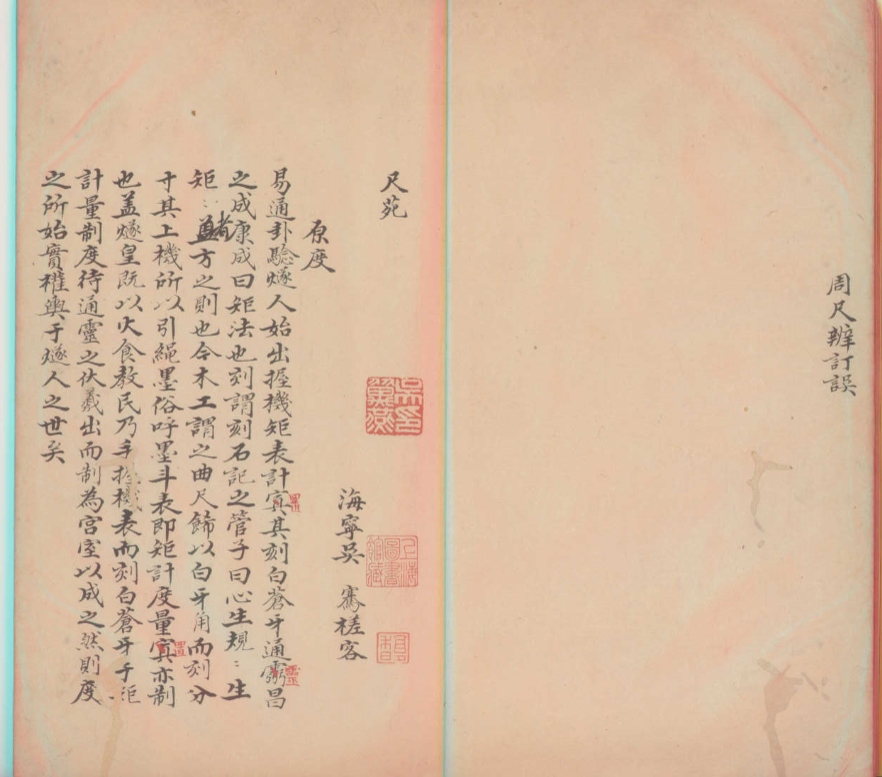 周尺辨訂誤
尺苑
上海圖書館藏
海寧吳 騫槎客
原度
易通卦驗燧人始出握機矩表計寘其刻白蒼牙通靈昌
之成康成曰矩法也刻謂刻石記之管子曰心生規〻生
矩〻者方之則也今木工謂之曲尺飾以白牙角而刻分
寸其上機所以引繩墨俗呼墨斗表即矩計度量寘亦制
也盖燧皇既以火食教民乃手握機表而刻白蒼牙于矩
計量制度待通靈之伏羲出而制為宮室以成之然則度
之所始實權輿于燧人之世矣